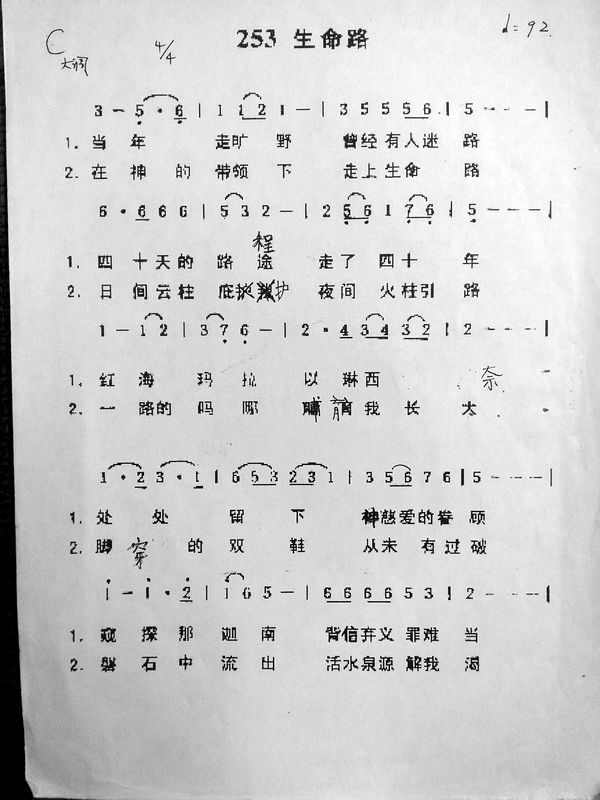 C 大调 4/4 253 生命路 d=92
3 — 5 · 6 | 1 1 2 1 — | 3 5 5 5 5 6 | 5 - - - |
1. 当 年 走旷 野 曾经有人迷 路
2. 在 神 的 带领 下 走上生命 路
6 · 6 6 6 | 5 3 2 — | 2 5 6 1 7 6 | 5 - - - |
程
1. 四 十天的 路 途 走了 四十 年
2. 日 间云柱 庇护 夜间 火柱引 路
1 — 1 2 | 3 7 6 — | 2 · 4 3 4 3 2 | 2 - - -
1. 红 海 玛 拉 以 琳西 奈
2. 一 路的 吗 哪 哺 育 我 长 大
1 · 2 3 · 1 | 6 5 3 2 3 1 | 3 5 6 7 6 | 5 - - - |
1. 处 处 留 下 神慈爱的眷 顾
2. 脚 穿 的 双 鞋 从未 有过破
1 — 1 · 2 | 1 6 5 — | 6 6 6 6 5 3 | 2 - - - |
1. 窥 探 那 迦南 背信弃义 罪难 当
2. 磐 石 中 流 出 活水泉源 解我 渴